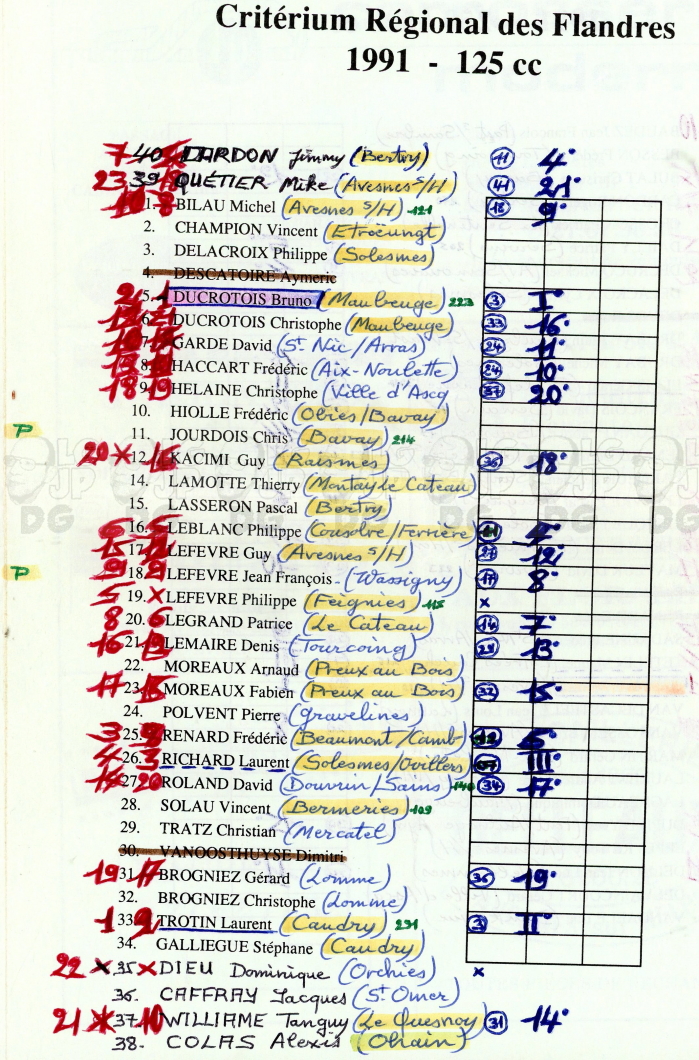 Critérium Régional des Flandres
1991 - 125 cc
7 40 DARDON Jimmy (Bertry) 11 4°
23 39 QUÉTIER Mike (Avesnes s/H) 41 21°
10 8 1. BILAU Michel (Avesnes s/H) 121 18 9°
2. CHAMPION Vincent (Etroeungt)
3. DELACROIX Philippe (Solesmes)
4. DESCATOIRE Aymeric
5. DUCROTOIS Bruno (Maubeuge) 223 3 I°
6. DUCROTOIS Christophe (Maubeuge) 33 16°
7. GARDE David (St Nic/Arras) 24 11°
8. HACCART Frédéric (Aix-Noulette) 24 10°
18 19 9. HELAINE Christophe (Ville d'Ascq 37 20°
10. HIOLLE Frédéric (Obies/Bavay)
P 11. JOURDOIS Chris (Bavay) 214
20 X 12. KACIMI Guy (Raismes) 36 18°
14. LAMOTTE Thierry (Montay le Cateau)
15. LASSERON Pascal (Bertry)
16. LEBLANC Philippe (Cousolre/Ferrière)
17. LEFEVRE Guy (Avesnes s/H) 27 12°
P 9 18. LEFEVRE Jean François - (Wassigny) 17 8°
5 19. X LEFEVRE Philippe (Feignies) x
8 20. 6 LEGRAND Patrice (Le Cateau) 14 7°
16 21. LEMAIRE Denis (Tourcoing) 29 13°
22. MOREAUX Arnaud (Preux au Bois)
17 23. MOREAUX Fabien (Preux au Bois) 32 15°
24. POLVENT Pierre (gravelines)
3 25. RENARD Frédéric (Beaumont/Camb)
4 26. 3 RICHARD Laurent (Solesmes/Ovillers) III°
27. 20 ROLAND David (Douvrin/Sains) 140 34 17°
28. SOLAU Vincent (Bermeries) 109
29. TRATZ Christian (Mercatel)
30. VANOOSTHUYSE Dimitri
19 31. 17 BROGNIEZ Gérard (Lomme) 36 19°
32. BROGNIEZ Christophe (Lomme)
1 33. 2 TROTIN Laurent (Caudry) 231 3 II°
34. GALLIEGUE Stéphane (Caudry)
22 X 35. X DIEU Dominique (Orchies) x
36. CAFFRAY Jacques (St Omer)
21 X 37. 10 WILLIAME Tanguy (Le Quesnoy) 31 14°
38. COLAS Alexis (Ohain)